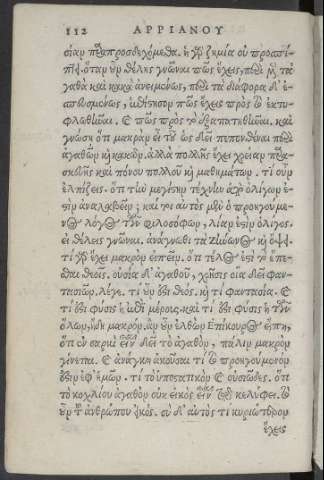 112 ΑΡΡΙΑΝΟΥ
σίαν προσδεχόμεθα. ἡ γὰρ ζημία οὐ προσπί-
πτει. ὅταν οὖν θέλῃς γνῶναι πῶς ἔχεις, περὶ μὲν τὰ
γαθὰ καὶ κακὰ ἀνειμένως, περὶ τὰ διάφορα δ' ἐ-
σπευσμένως, ἐπίστησον πῶς ἔχεις πρὸς τὸ ἐκτυ-
φλωθῆναι. καὶ πῶς πρὸς τὸ ἐξαπατηθῆναι. καὶ
γνώσῃ ὅτι μακρὰν εἶ τοῦ ὡς δεῖ πεπονθέναι περὶ
ἀγαθῶν καὶ κακῶν. ἀλλὰ πολλῆς ἔχει χρείαν παρα-
σκευῆς καὶ πόνου πολλοῦ καὶ μαθημάτων. τί οὖν
ἐλπίζεις. ὅτι τὴν μεγίστην τέχνην ἀπὸ ὀλίγων ἔ-
στιν ἀναλαβεῖν; καί τοι αὐτὸς μὲν ὁ προηγούμε-
νος λόγος τῶν φιλοσόφων, λίαν ἐστὶν ὀλίγος.
εἰ θέλεις γνῶναι, ἀνάγνωθι τὰ Ζήνωνος καὶ ὄψει.
τί γὰρ ἔχει μακρὸν εἰπεῖν. ὅτι τέλος ἐστὶ τὸ ἕπε-
σθαι θεοῖς, οὐσία δ' ἀγαθοῦ, χρῆσις οἵα δεῖ φαν-
τασιῶν. λέγε. τί οὖν ἐστι θεός. καὶ τί φαντασία. καὶ
τί ἐστι φύσις ἡ ἐπὶ μέρους, καὶ τί ἐστι φύσις ἡ τῶν
ὅλων, ἤδη μακρόν. ἂν οὖν ἐλθὼν Ἐπίκουρος εἴπῃ,
ὅτι ἐν σαρκὶ εἶναι δεῖ τὸ ἀγαθόν, πάλιν μακρὸν
γίνεται. καὶ ἀνάγκη ἀκοῦσαι τί τὸ προηγούμενόν
ἐστιν ἐφ' ἡμῶν. τί τὸ ὑποστατικὸν καὶ οὐσιῶδες. ὅτι
τὸ κοχλίου ἀγαθὸν οὐκ εἰκὸς εἶναι ἐν κελύφει. τὸ
οὖν τοῦ ἀνθρώπου εἰκός. σὺ δ' αὐτὸς τί κυριώτερον
ἔχεις